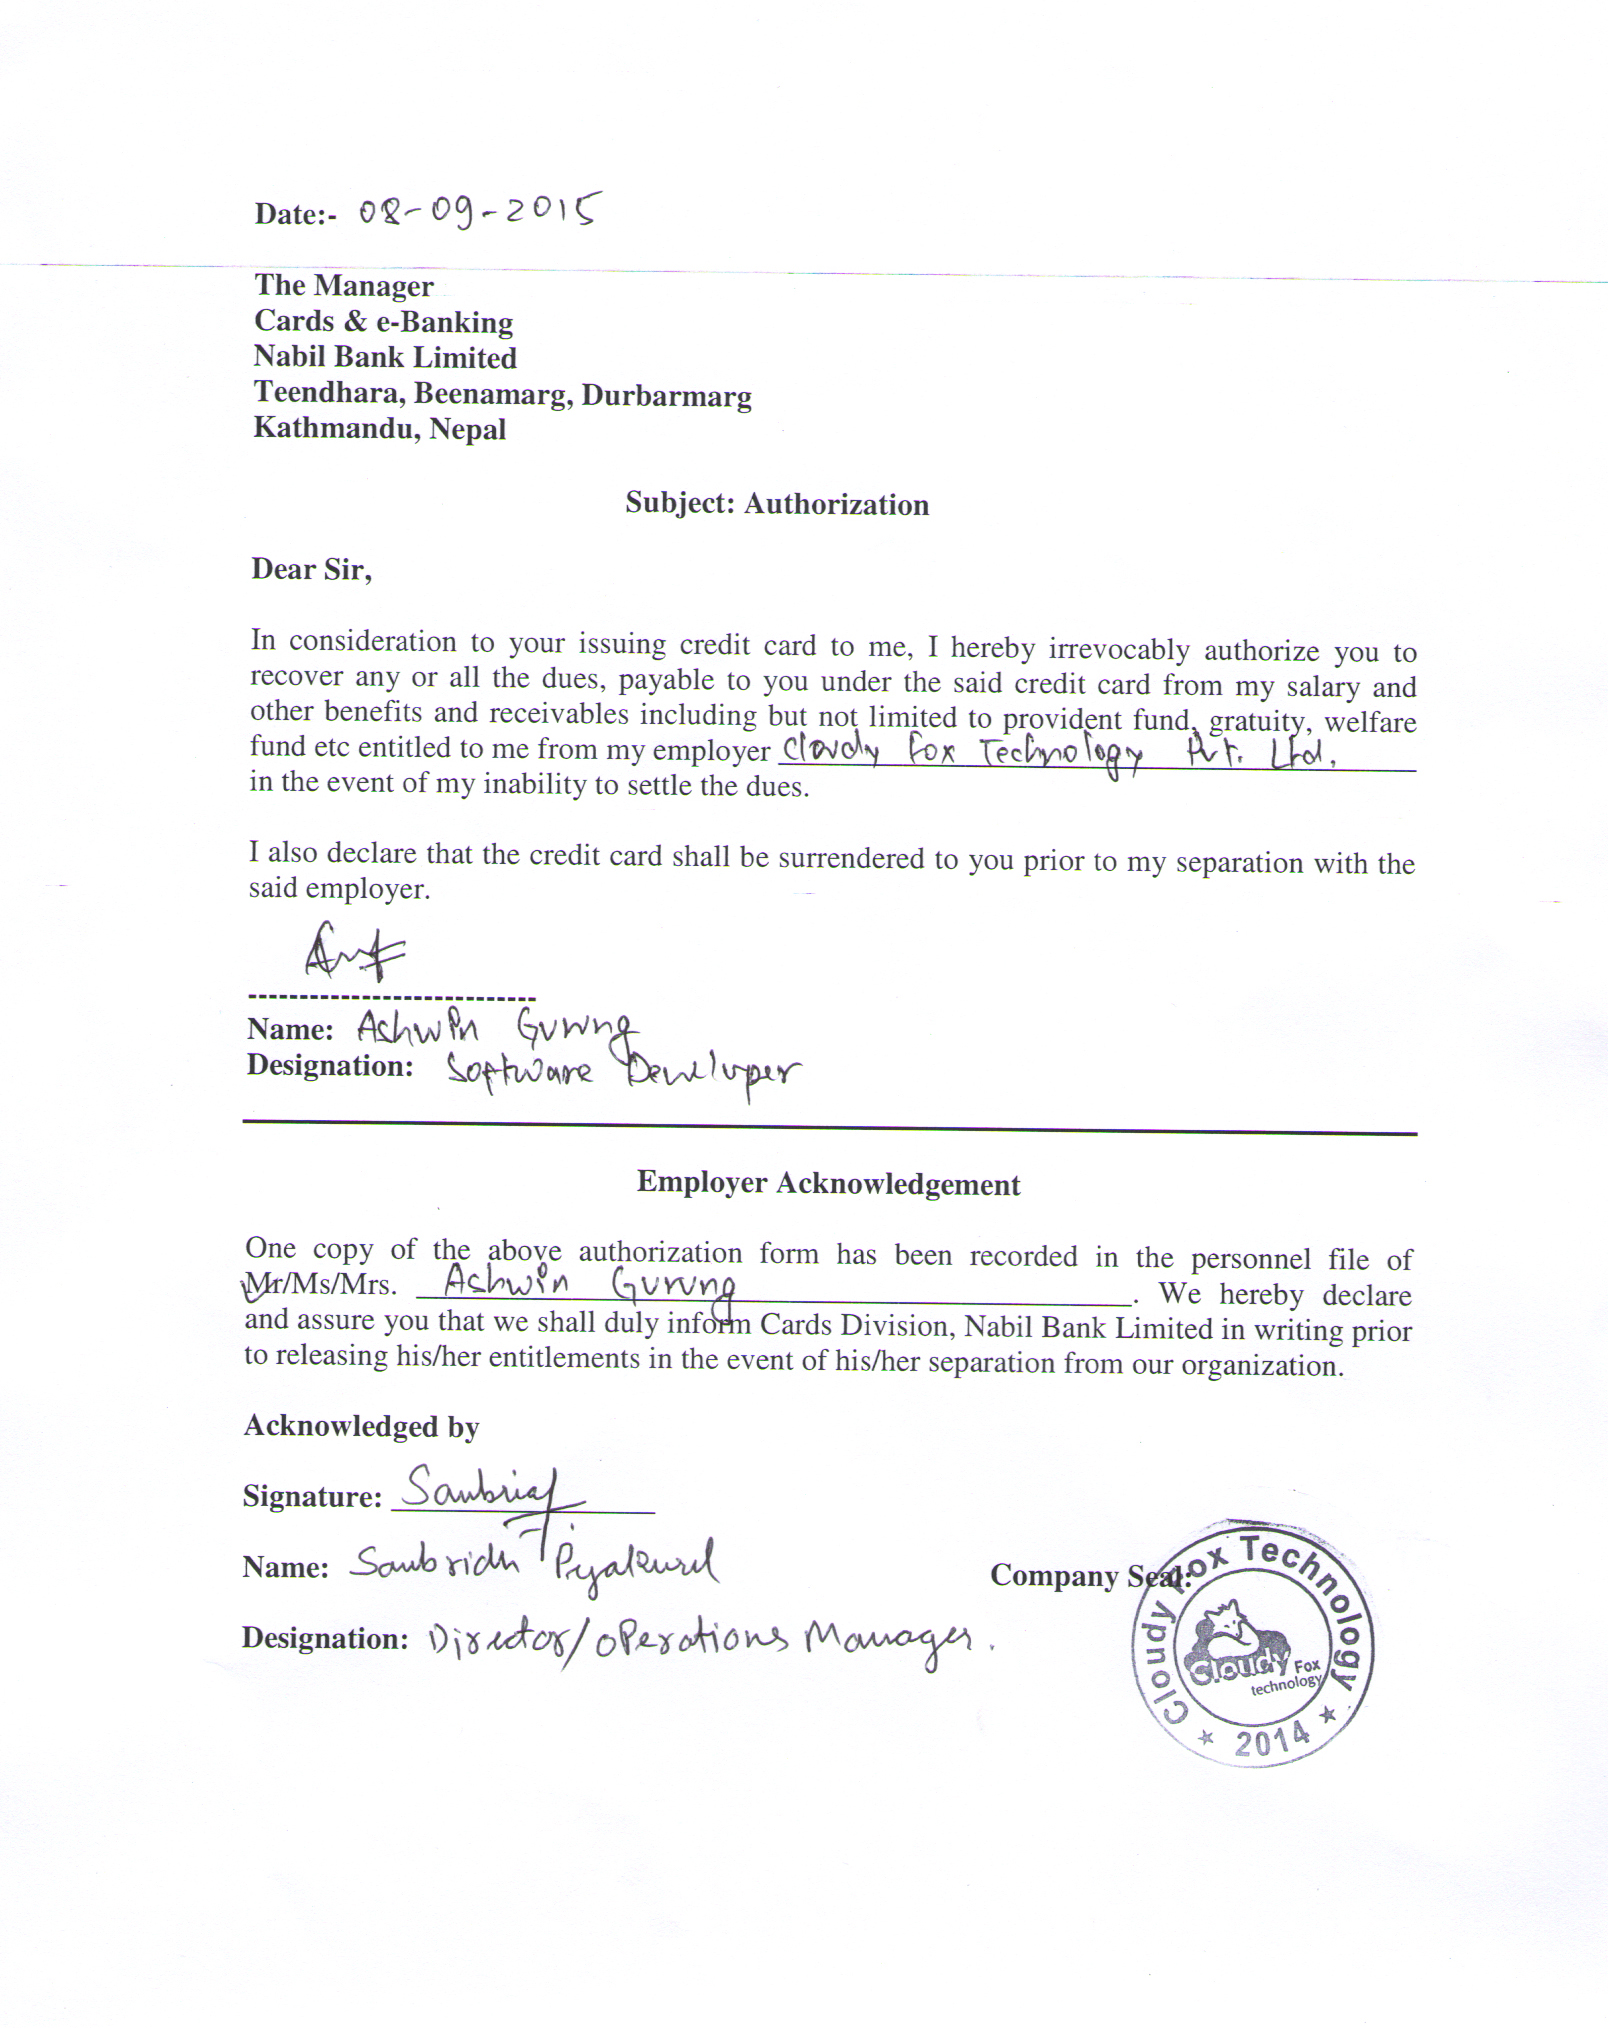 Date:- 08-09-2015
The Manager
Cards & e-Banking
Nabil Bank Limited
Teendhara, Beenamarg, Durbarmarg
Kathmandu, Nepal
Subject: Authorization
Dear Sir,
In consideration to your issuing credit card to me, I hereby irrevocably authorize you to
recover any or all the dues, payable to you under the said credit card from my salary and
other benefits and receivables including but not limited to provident fund, gratuity, welfare
fund etc entitled to me from my employer Cloudy Fox Technology Pvt. Ltd.
in the event of my inability to settle the dues.
I also declare that the credit card shall be surrendered to you prior to my separation with the
said employer.
Name: Ashwin Gurung
Designation: Software Developer
Employer Acknowledgement
One copy of the above authorization form has been recorded in the personnel file of
Mr/Ms/Mrs. Ashwin Gurung. We hereby declare
and assure you that we shall duly inform Cards Division, Nabil Bank Limited in writing prior
to releasing his/her entitlements in the event of his/her separation from our organization.
Acknowledged by
Signature:
Name: Saubridh Pyakurel
Company Seal:
Designation: Director/Operations Manager.
Cloudy Fox Technology
Cloudy Fox
technology
2014